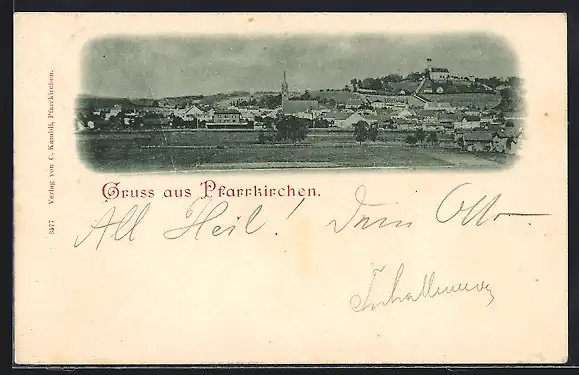 Gruss aus Pfarrkirchen.
All Heil! Dein Otto
Verlag von C. Kambli, Pfarrkirchen.
3577